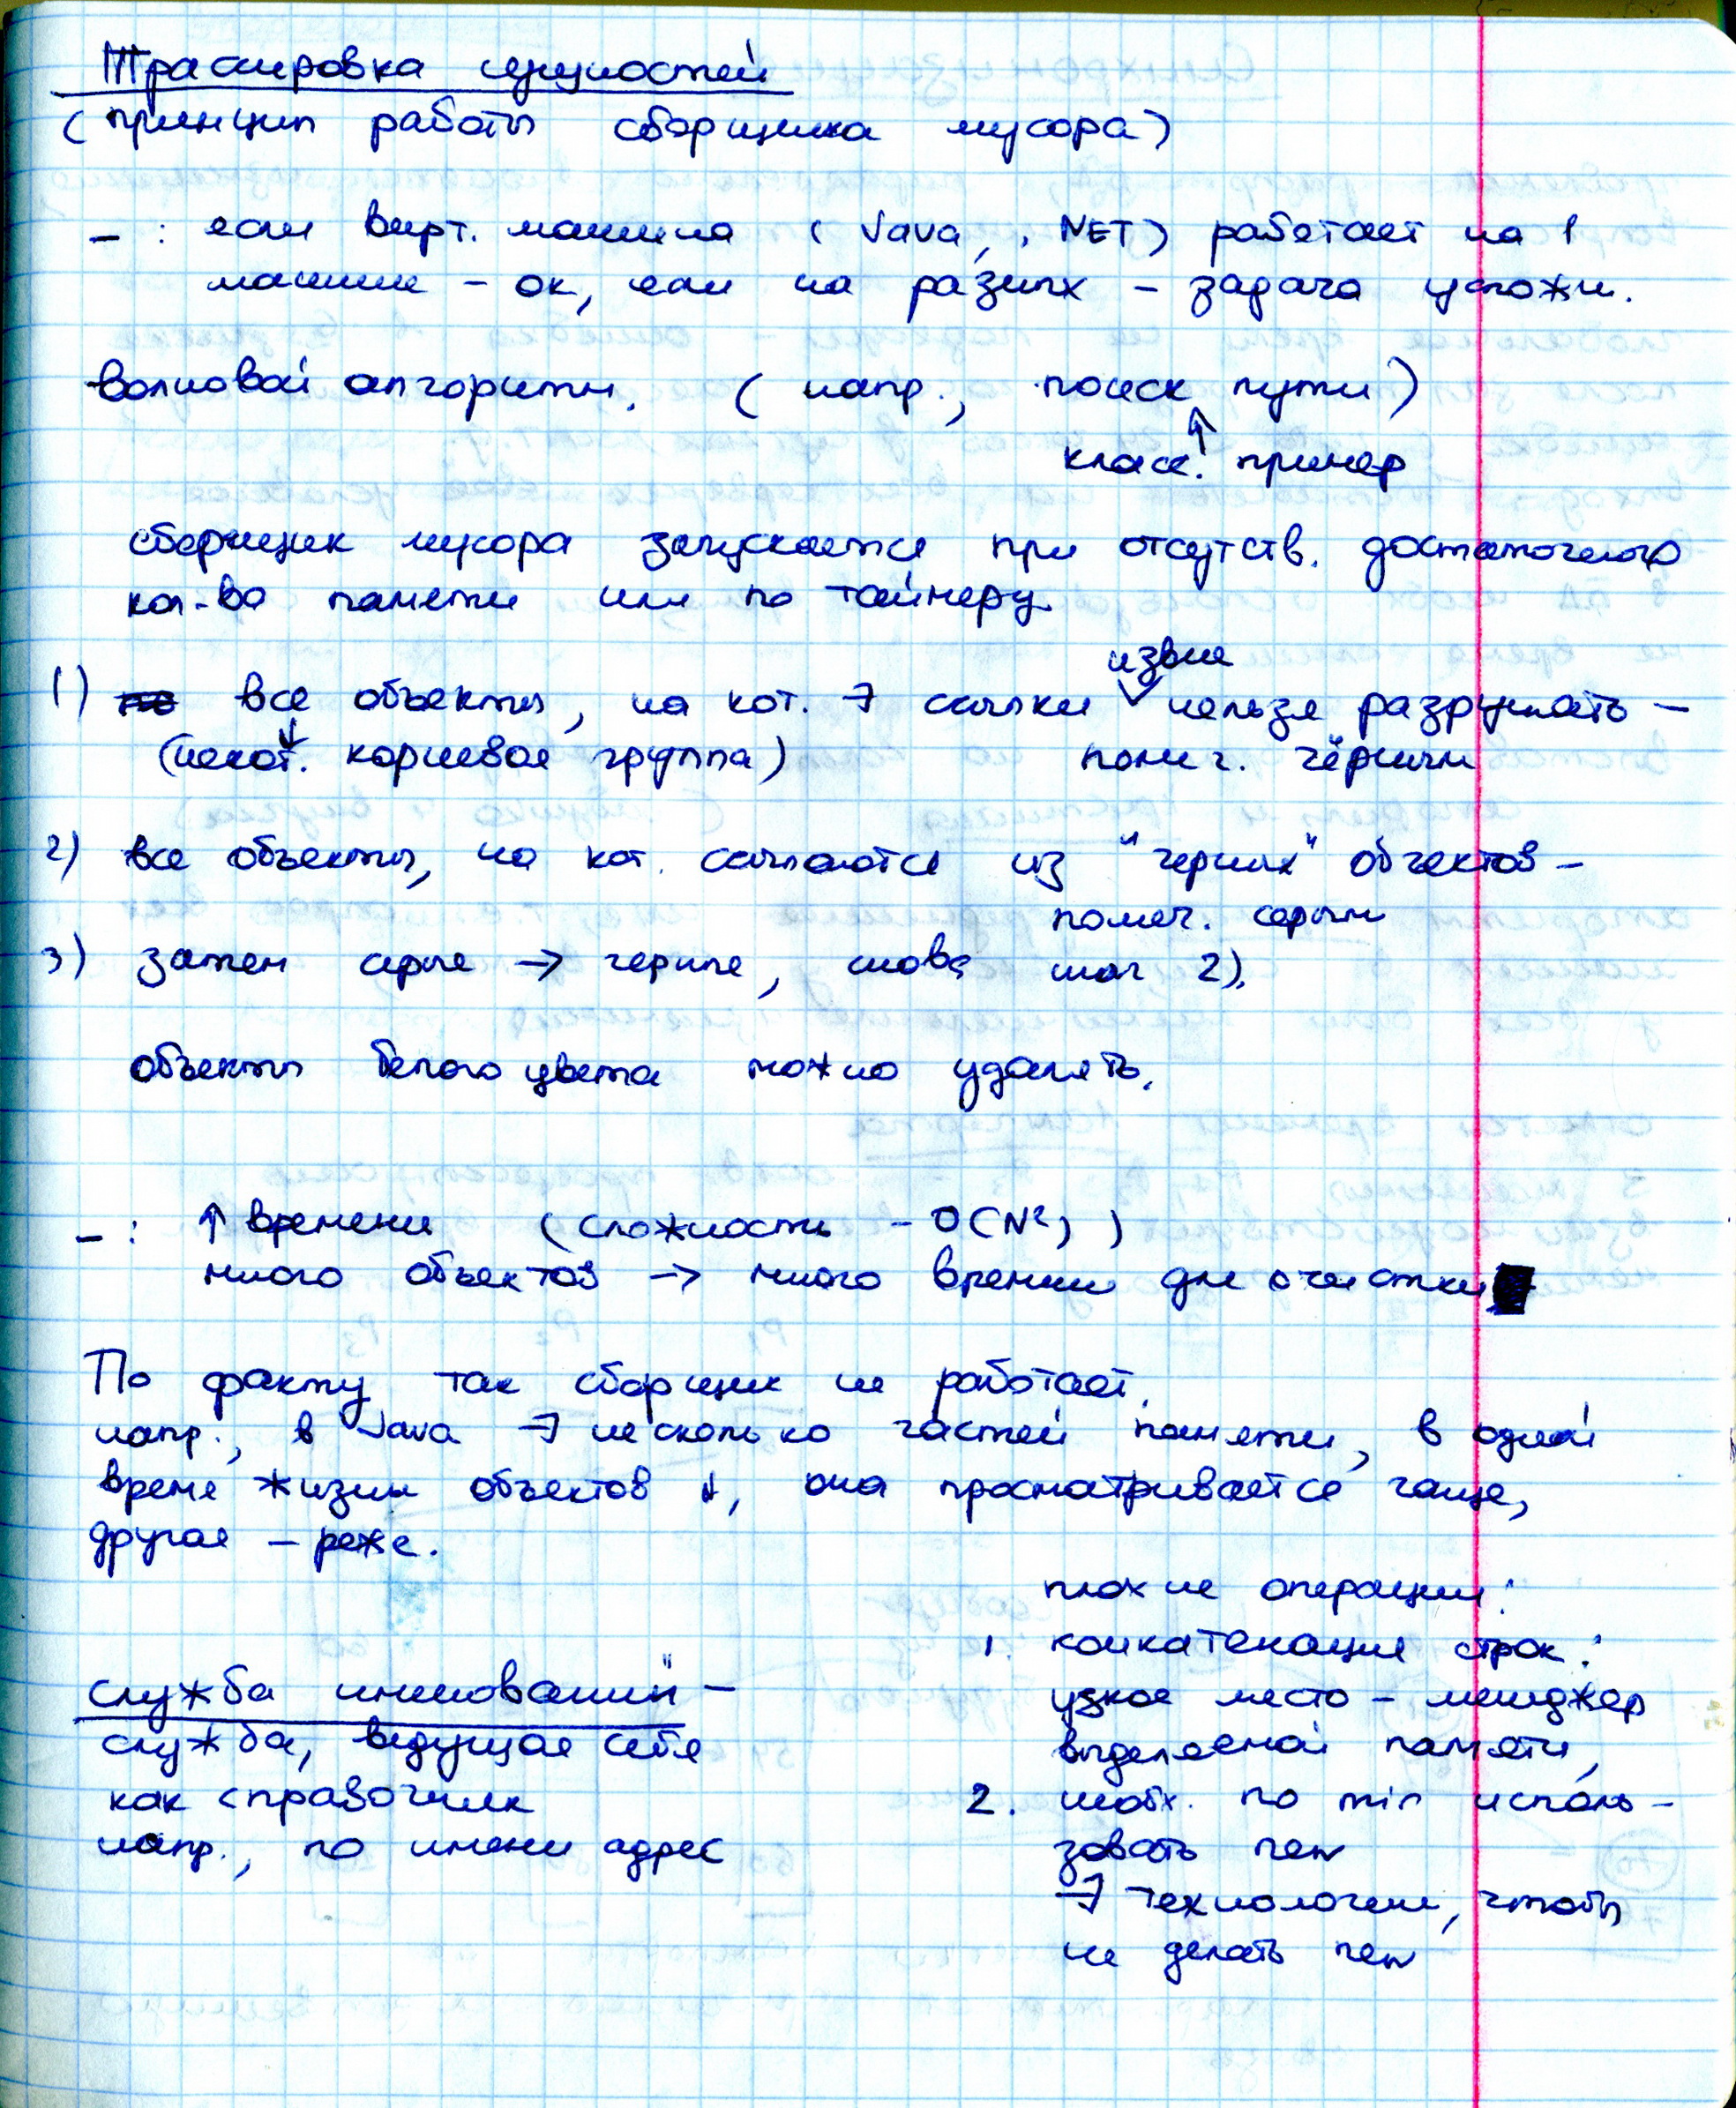 Трассировка сущностей
(принцип работы сборщика мусора)
– : если вирт. машина (Java, .NET) работает на 1
машине – ок, если на разных – задача усложн.
волновой алгоритм. (напр., поиск пути)
↑
класс. пример
сборщик мусора запускается при отсутств. достаточного
кол-ва памяти или по таймеру.
извне
1) все объекты, на кот. ∃ ссылки нельзя разрушать –
(некот. корневая группа) помеч. чёрным
2) все объекты, на кот. ссылаются из "черных" объектов –
помеч. серым
3) затем серые → черные, снова шаг 2).
объекты белого цвета можно удалять.
– : ↑ времени (сложность – O(N²))
много объектов → много времени для очистки
По факту так сборщик не работает.
напр., в Java ∃ несколько частей памяти, в одной
время жизни объектов ↓, она просматривается чаще,
другая – реже.
служба именований –
служба, ведущая себя
как справочник
напр., по имени адрес
плохие операции:
1. конкатенация строк:
узкое место – менеджер
выделяемой памяти,
2. необх. по min исполь-
зовать new
∃ технологии, чтобы
не делать new